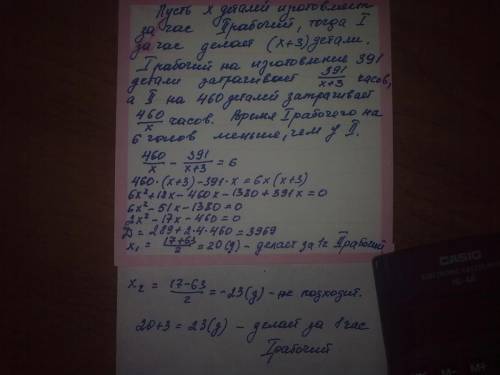 Пусть x деталей изготовляет
за час II рабочий, тогда I
за час делает (x+3) детали.
I рабочий на изготовление 391
детали затрачивает 391/(x+3) часов,
а II на 460 деталей затрачивает
460/x часов. Время I рабочего на
6 часов меньше, чем у II.
460/x - 391/(x+3) = 6
460·(x+3)-391·x=6x(x+3)
6x²+18x-460x-1380+391x=0
6x²-51x-1380=0
2x²-17x-460=0
D=289+2·4·460=3969
x₁=(17+63)/2=20(д)-делает за 1ч II рабочий
x₂=(17-63)/2=-23(д)-не подходит.
20+3=23(д)-делает за 1 час
I рабочий
CASIO
M-
M+